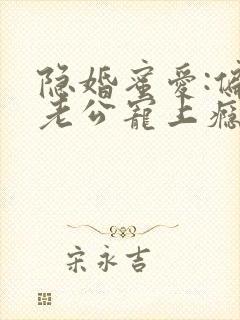 隐婚蜜爱:偏
老公宠上瘾
宋永吉